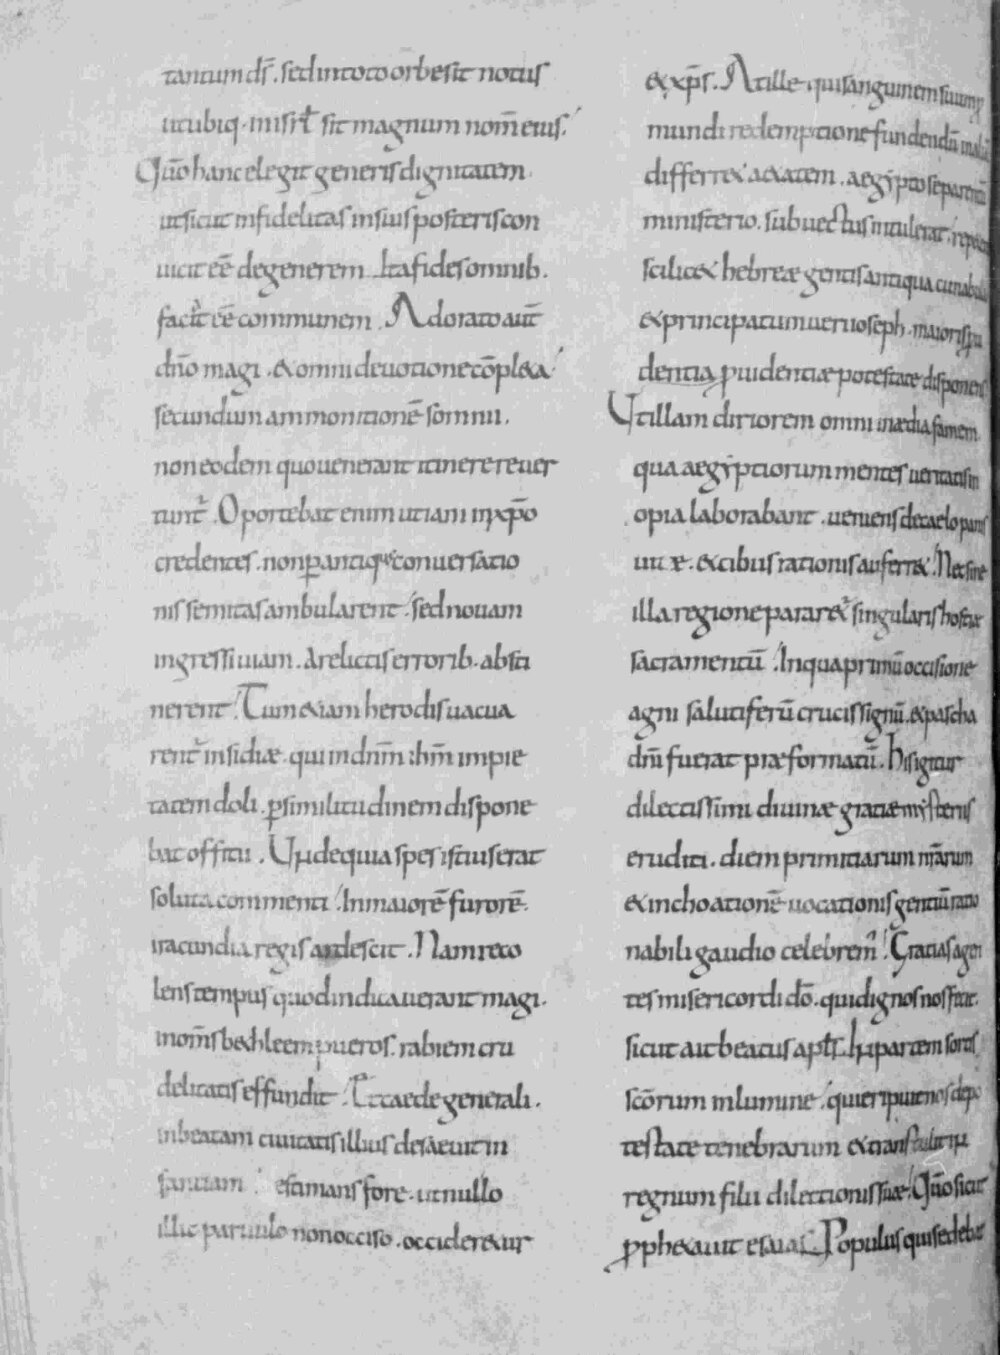 tantum ds̄. sed in toto orbe sit notus
ut ubiq. in isrł sit magnum nom̄ eius.
Qūo hanc elegit generis dignitatem.
ut sicut infidelitas in suis posteris con
uicit eē degenerem. Ita fides omnib.
facit eē communem. Adorato aut̄
dn̄o magi. & omni deuotione cōpl&a
secundum ammonitionē somnii.
non eodem quo uenerant itinere reuer
tunt᷑. Oportebat enim ut iam in xp̄o
credentes. non ꝑ antiquę conuersatio
nis semitas ambularent. sed nouam
ingressi uiam. a relictis errorib. absti
nerent. Tum &iam herodis uacua
rent᷑ insidiæ. qui in dnm̄ ihm̄ impie
tatem doli. ꝑ similitudinem dispone
bat officii. Unde quia spes istius erat
soluta commenti. In maiorē furorē
iracundia regis ardescit. Nam reco
lens tempus quod indicauerant magi.
in om̄s b&hleem pueros. rabiem cru
delitatis effundit. Et caede generali.
in beatam ciuitatis illius desaeuit in
fantiam estimans fore. ut nullo
illic paruulo non occiso. occider&ur
& xp̄s. At ille qui sanguinem suum
mundi redemptione fundendū
differr& a&atem. aegypto separentū
ministerio. subuectus intulerat.
scilic& hebreæ gentis antiqua cunabula
& principatum ueri ioseph. maioris
dentia ꝓuidentiæ potestate disponens
Ut illam diriorem omni inædia famem
qua aegyptiorum mentes ueritatis in
opia laborabant. ueniens de caelo panis
uitæ. & cibus rationis auferr&. Nec sine
illa regione parar&᷑ singularis hostiæ
sacramentū. In qua primū occisione
agni salutiferū crucis signū. & pascha
dn̄i fuerat præformatū. His igitur
dilectissimi diuinæ gratiæ mysteriis
eruditi. diem primitiarum nr̄arum
& inchoationē uocationis gentiū ratio
nabili gaudio celebrem᷑. Gratias agen
tes misericordi dō. qui dignos nos fecit.
sicut ait beatus apłs. In partem sortis
scōrum in lumine. qui eripuit nos de po
testate tenebrarum & transtulit in
regnum filii dilectionis suæ. Qūo sicut
ꝓph&auit esaias. Populus qui sedebat